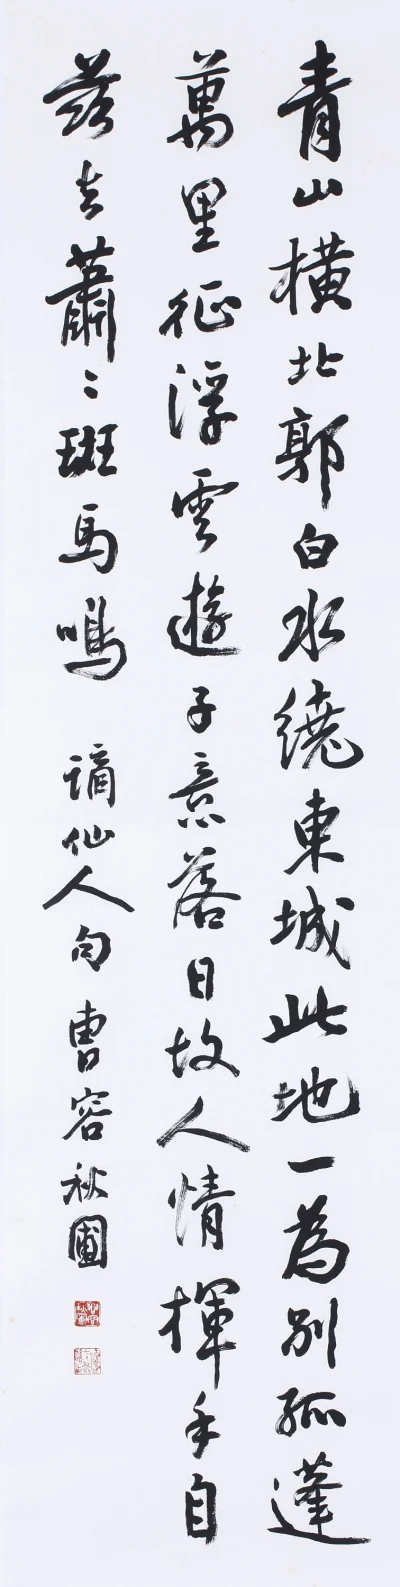 青山橫北郭白水繞東城此地一為別孤蓬
萬里征浮雲遊子意落日故人情揮手自
茲去蕭〻斑馬鳴 謫仙人句 曹容秋圃